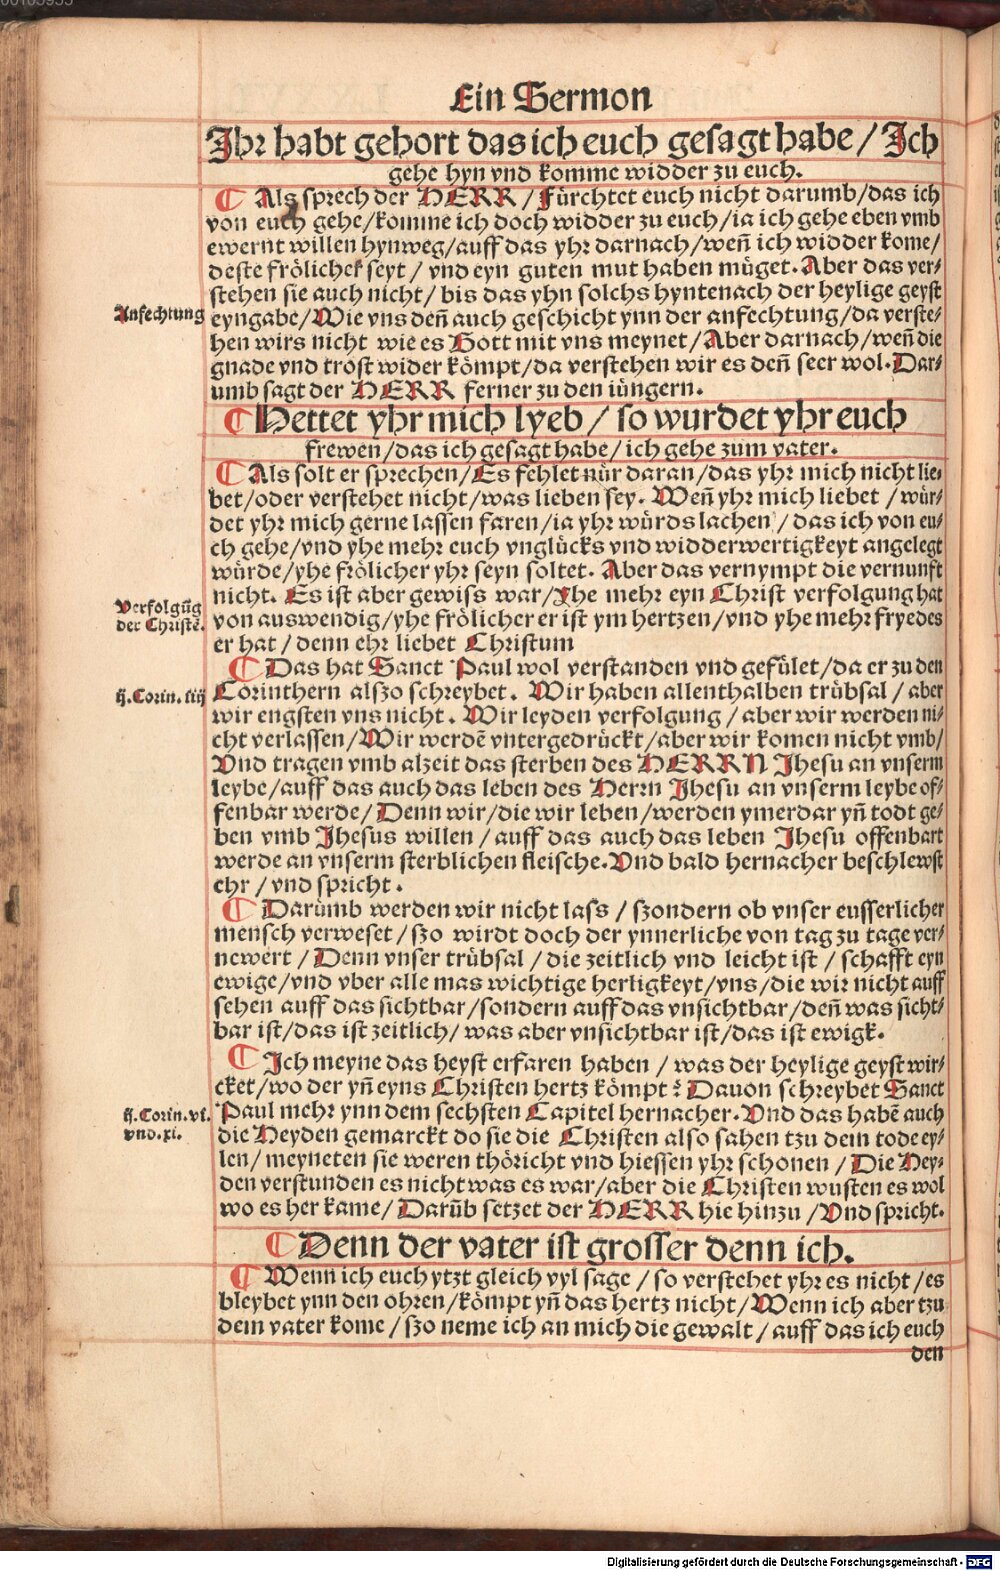 Ein Sermon
Ihr habt gehort das ich euch gesagt habe / Ich
gehe hyn vnd komme widder zu euch.
¶ Als sprech der HERR / Fürchtet euch nicht darumb / das ich
von euch gehe / komme ich doch widder zu euch / ia ich gehe eben vmb
ewernt willen hynweg / auff das yhr darnach / weñ ich widder kome /
deste frölicher seyt / vnd eyn guten mut haben müget. Aber das ver⸗
stehen sie auch nicht / bis das yhn solchs hyntenach der heylige geyst
Anfechtung
eyngabe / Wie vns deñ auch geschicht ynn der anfechtung / da verste⸗
hen wirs nicht wie es Gott mit vns meynet / Aber darnach / weñ die
gnade vnd trost wider kömpt / da verstehen wir es deñ seer wol. Dar⸗
umb sagt der HERR ferner zu den iüngern.
¶ Hettet yhr mich lyeb / so wurdet yhr euch
frewen / das ich gesagt habe / ich gehe zum vater.
¶ Als solt er sprechen / Es fehlet nür daran / das yhr mich nicht lie⸗
bet / oder verstehet nicht / was lieben sey. Weñ yhr mich liebet / wür⸗
det yhr mich gerne lassen faren / ia yhr würds lachen / das ich von eu⸗
ch gehe / vnd yhe mehr euch vnglücks vnd widderwertigkeyt angelegt
würde / yhe frölicher yhr seyn soltet. Aber das vernympt die vernunft
nicht. Es ist aber gewiss war / Ihe mehr eyn Christ verfolgung hat
Verfolgũg
der Christẽ.
von auswendig / yhe frölicher er ist ym hertzen / vnd yhe mehr fryedes
er hat / denn ehr liebet Christum
¶ Das hat Sanct Paul wol verstanden vnd gefület / da er zu den
ij. Corin. iiij
Corinthern alszo schreybet. Wir haben allenthalben trübsal / aber
wir engsten vns nicht. Wir leyden verfolgung / aber wir werden ni⸗
cht verlassen / Wir werdẽ vntergedrückt / aber wir komen nicht vmb /
Vnd tragen vmb alzeit das sterben des HERRN Jhesu an vnserm
leybe / auff das auch das leben des Herrn Jhesu an vnserm leybe of⸗
fenbar werde / Denn wir / die wir leben / werden ymerdar yñ todt ge⸗
ben vmb Jhesus willen / auff das auch das leben Jhesu offenbart
werde an vnserm sterblichen fleische. Vnd bald hernacher beschlewst
ehr / vnd spricht.
¶ Darümb werden wir nicht lass / szondern ob vnser eusserlicher
mensch verweset / szo wirdt doch der ynnerliche von tag zu tage ver⸗
newert / Denn vnser trübsal / die zeitlich vnd leicht ist / schafft eyn
ewige / vnd vber alle mas wichtige herligkeyt / vns / die wir nicht auff
sehen auff das sichtbar / sondern auff das vnsichtbar / deñ was sicht⸗
bar ist / das ist zeitlich / was aber vnsichtbar ist / das ist ewigk.
¶ Ich meyne das heyst erfaren haben / was der heylige geyst wir⸗
cket / wo der yñ eyns Christen hertz kömpt? Dauon schreybet Sanct
ij. Corin. vi.
vnd. xi.
Paul mehr ynn dem sechsten Capitel hernacher. Vnd das habẽ auch
die Heyden gemarckt do sie die Christen also sahen tzu dem tode ey⸗
len / meyneten sie weren thöricht vnd hiessen yhr schonen / Die Hey⸗
den verstunden es nicht was es war / aber die Christen wusten es wol
wo es her kame / Darüb setzet der HERR hie hinzu / Vnd spricht.
¶ Denn der vater ist grosser denn ich.
¶ Wenn ich euch ytzt gleich vyl sage / so verstehet yhr es nicht / es
bleybet ynn den ohren / kömpt yñ das hertz nicht / Wenn ich aber tzu
dem vater kome / szo neme ich an mich die gewalt / auff das ich euch
den
Digitalisierung gefördert durch die Deutsche Forschungsgemeinschaft - DFG